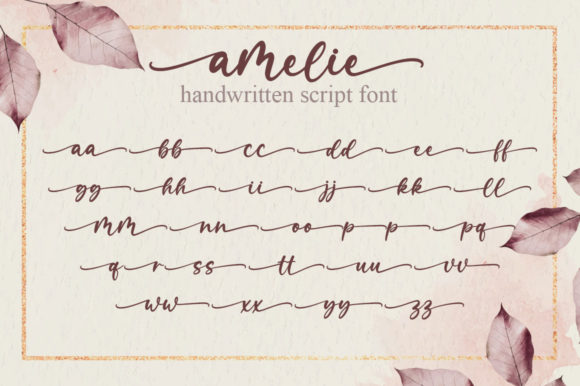 amelie
handwritten script font
aa bb cc dd ee ff
gg hh ii jj kk ll
mm nn oo p p pq
q r ss tt uu vv
ww xx yy zz